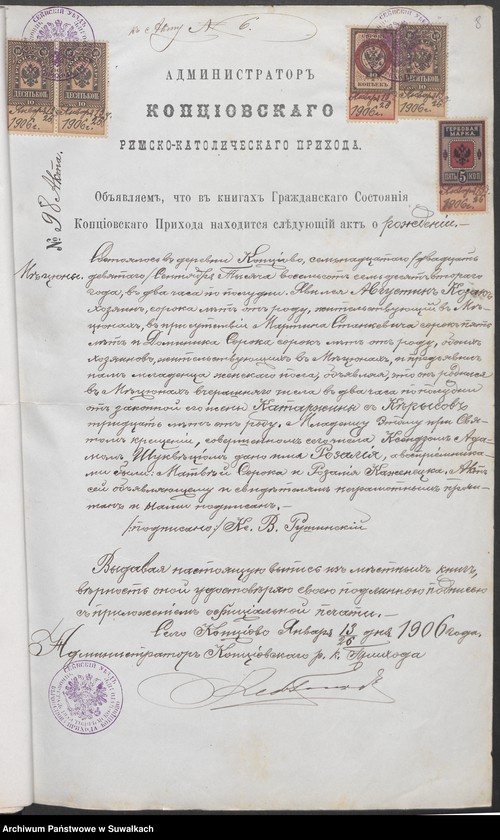 къ Акту № 6.
8
АДМИНИСТРАТОРЪ
КОПЦІОВСКАГО
РИМСКО-КАТОЛИЧЕСКАГО ПРИХОДА.
№ 98 Акта.
Объявляемъ, что въ книгахъ Гражданскаго Состоянія
Копціовскаго Прихода находится слѣдующій актъ о рожденіи.—
Мѣцюны.
Состоялось въ деревни Копціово, семнадцатаго /двадцать
девятаго/ Сентября Тысяча восемьсотъ семьдесятъ втораго
года, въ два часа по полудни. Явился Августинъ
хозяинъ, сорока лѣтъ отъ роду, жительствующій въ Мѣ-
цюнахъ, въ присутствіи Мартина Станкевича сорокъ пять
лѣтъ и Доминика Сорока сорокъ лѣтъ отъ роду, обоихъ
хозяиновъ, жительствующихъ въ Мѣцюнахъ, и предъявилъ
намъ младенца женскаго пола, объявляя, что онъ родился
въ Мѣцюнахъ вчерашняго числа въ два часа по полудни
отъ законной его жены Катаржины съ
тридцать лѣтъ отъ роду. Младенцу этому при Свя-
томъ крещеніи, совершенномъ сего числа Ксендзомъ Ада-
момъ дано имя Розалія, а воспріемника-
ми были: Матвѣй Сорока и Розалія Каменецка. Актъ
сей объявляющему и свидѣтелямъ неграмотнымъ прочи-
танъ и нами подписанъ.
/подписано/ Кс. В. Гутинскій
Выдавая настоящую выпись изъ мѣстныхъ книгъ,
вѣрность оной удостовѣряю своею подлинною подписью
съ приложеніемъ оффиціальной печати.—
Село Копціово Января 13/26 дня 1906 года.
Администраторъ Копціовскаго р. к. Прихода
ДЕСЯТЬ КОП.
10
1906 г.
ДЕСЯТЬ КОП.
10
1906 г.
КОПѢЕКЪ
ДЕСЯТЬ КОП.
10
1906 г.
ГЕРБОВАЯ
МАРКА.
ПЯТЬ 5 КОП
1906 г.
СЕЙНСКІЙ УѢЗДЪ
Archiwum Państwowe w Suwałkach